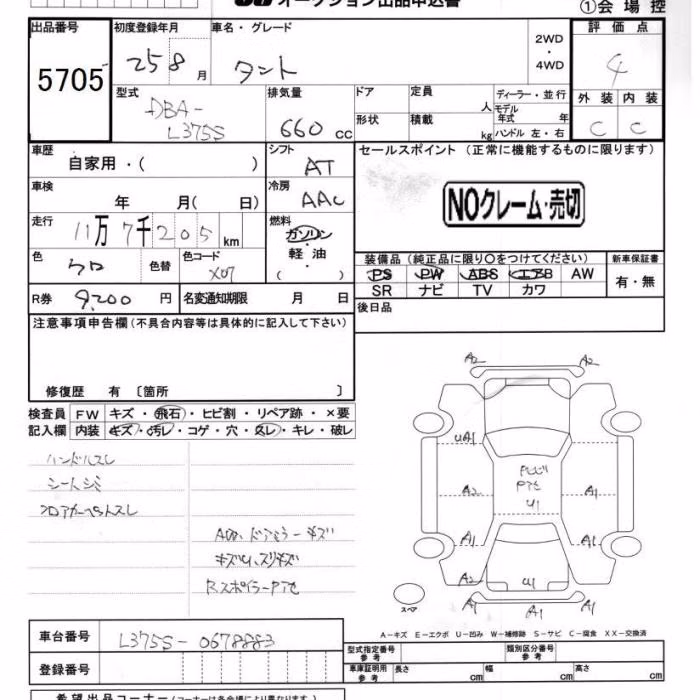 オークション出品申込書 ①会場控
出品番号 初度登録年月 車名・グレード 2WD・4WD 評価点
5705 25 8月 タント 4
型式 排気量 ドア 定員 人 ディーラー・並行 外装 内装
DBA-L375S 660cc 形状 積載 kg モデル年式 年 ハンドル 左・右 C C
車歴 シフト セールスポイント (正常に機能するものに限ります)
自家用・( ) AT
車検 冷房 NOクレーム・売切
年 月( 日) AAC
走行 燃料
11万7千205km ガソリン
軽油
( )
色 色替 色コード 装備品 (純正品に限り○をつけてください) 新車保証書
クロ X07 PS PW ABS エアB AW 有・無
SR ナビ TV カワ
R券 9,200円 名変通知期限 月 日 後日品
注意事項申告欄 (不具合内容等は具体的に記入して下さい)
修復歴 有 〔箇所 〕
検査員 FW キズ・飛石・ヒビ割・リペア跡・×要
記入欄 内装 キズ・汚レ・コゲ・穴・スレ・キレ・破レ
ハンドルスレ
シートシミ
フロアカーペットスレ
ドアミラーキズ
キズU、スリキズ
RスポイラーPアセ
A2 A2
UA1
Pアセ
U1
A2 A1 A1
A1 A1 A1 A1
A2 U1
A1
スペア
A-キズ E-エクボ U-凹み W-補修跡 S-サビ C-腐食 XX-交換済
車台番号 L375S-0678883
登録番号
型式指定番号 参考 類別区分番号 参考
車庫証明用 参考 長さ cm 幅 cm 高さ cm
希望出品コーナー (コーナーは各会場により異なります)